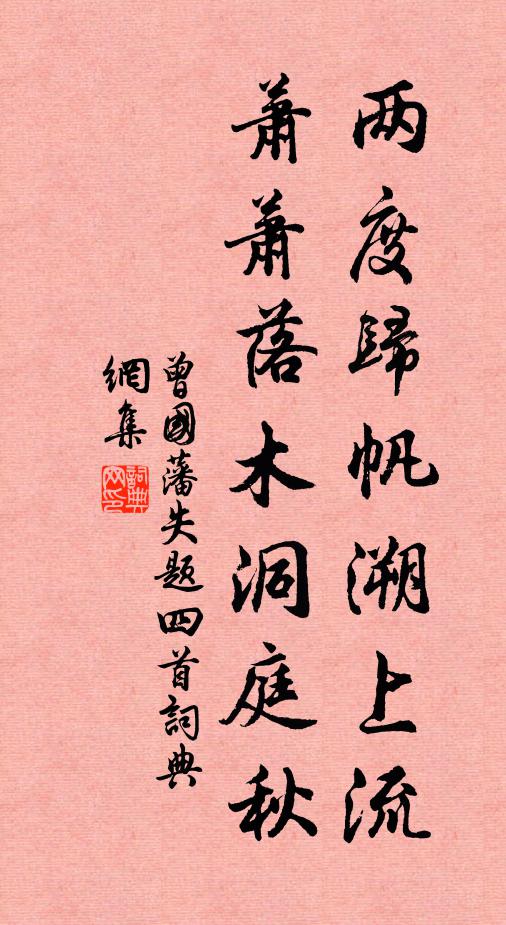 两度歸帆溯上流
蕭蕭落木洞庭秋
曾國藩失题四首詞典
網集
詞典網印